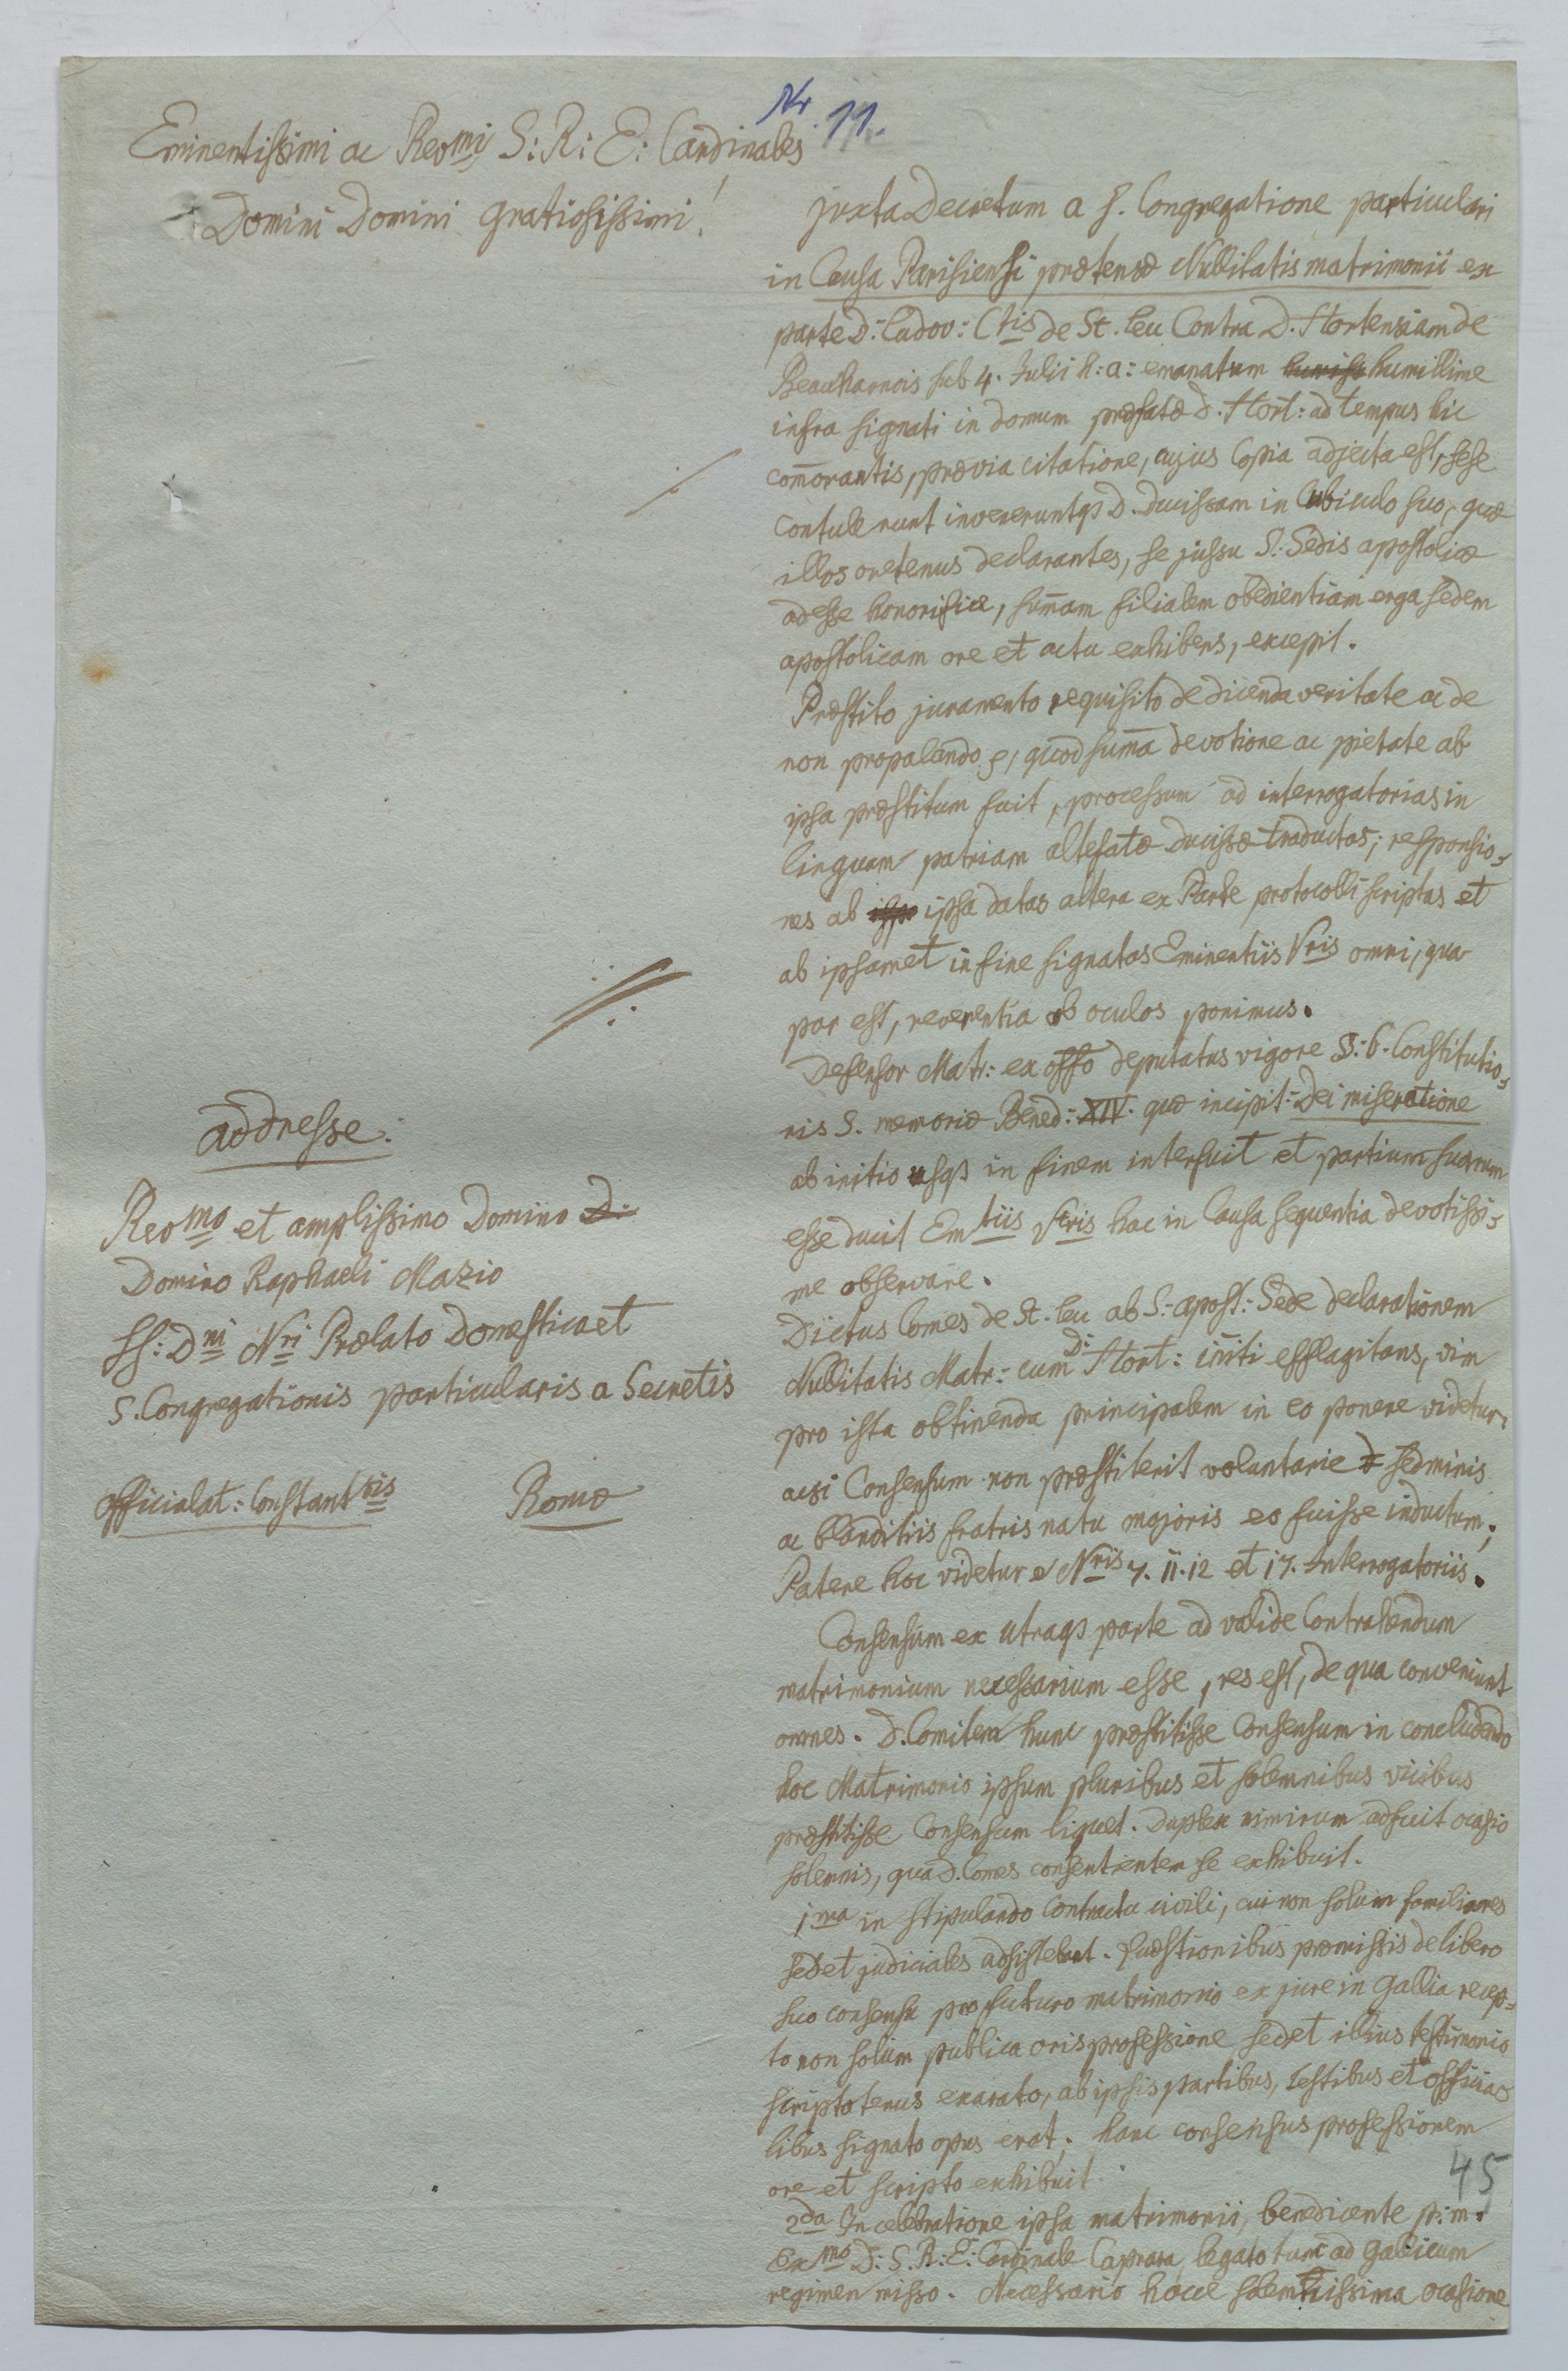 Nr. 11.
Eminentissimi ac Revmi S: R: E: Cardinales
Domini Domini gratiosissimi!
juxta Decretum a S. Congregatione particulari
in Causa Parisiensi prætensæ Nullitatis matrimonii ex
parte D: Ludov: Ctis de St. Leu Contra D. Hortensiam de
Beauharnois sub 4. Julii h: a: emanatum humillime
infra signati in domum præfatæ D. Hort: ad tempus hic
com̄orantis, prævia citatione, cujus Copia adjecta est, sese
contulerunt inveneruntqs D. Ducissam in Cubiculo suo, quæ
illos oretenus declarantes, se jussu S: Sedis apostolicæ
adesse honorifice, sum̄am filialem obedientiam erga sedem
apostolicam ore et actu exhibens, excepit.
Præstito juramento requisito de dicenda veritate ac de
non propalando, quod sum̄a devotione ac pietate ab
ipsa præstitum fuit, processum ad interrogatorias in
linguam patriam altefatæ Ducissæ traductas; responsio=
nes ab ipsa datas altera ex Parte protocolli scriptas et
ab ipsamet in fine signatas Eminentiis Vris omni, qua
par est, reverentia ob oculos ponimus.
Defensor Matr: ex offo deputatus vigore S: 6. Constitutio=
nis S. memoriæ Bened: XIV. quæ incipit: Dei miseratione
ab initio usqs in finem interfuit et partium suarum
esse ducit Emtiis Vris hac in Causa sequentia devotissi=
me observare.
Dictus Comes de St. Leu ab S: apost: Sede declarationem
Nullitatis Matr: cum D: Hort: initi efflagitans, vim
pro ista obtinenda principalem in eo ponere videtur,
acsi Consensum non præstiterit voluntarie sed minis
ac blanditiis fratris natu majoris eo fuisse inductum;
Patere hoc videtur e Nris 7. 11. 12 et 17. Interrogatoriis.
Consensum ex utraqs parte ad valide Contrahendum
matrimonium necessarium esse, res est, de qua conveniunt
omnes. D. Comitem hunc præstitisse Consensum in concludendo
hoc Matrimonio ipsum pluribus et solemnibus vicibus
præstitisse Consensum liquet. Duplex nimirum adfuit ocasio
solemnis, qua D. Comes consentientem se exhibuit.
1ma in stipulando Contractu civili, cui non solum familiares
sed et judiciales adsistebant. Quæstionibus præmissis de libero
suo consensu pro futuro matrimonio ex jure in Gallia recep=
to non solum publica oris professione sed et illius testimonio
scriptotenus exarato, ab ipsis partibus, testibus et officia=
libus signato opus erat; hanc consensus professionem
ore et scripto exhibuit.
2da In celebratione ipsa matrimonii, benedicente p: m:
Exmo D: S: R: E: Cardinale Caprara, legato tunc ad Gallicum
regimen misso. Necessario hacce solemnissima ocasione
45
addresse:
Revmo et amplissimo Domino D:
Domino Raphaeli Mazio
SS: Dni Nri Prælato Domestico et
S. Congregationis particularis a Secretis
Romæ
officialat: Constanttis